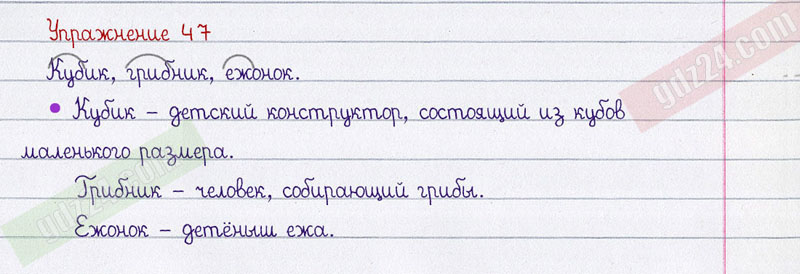 Упражнение 47
Кубик, грибник, ежонок.
• Кубик – детский конструктор, состоящий из кубов
маленького размера.
Грибник – человек, собирающий грибы.
Ежонок – детёныш ежа.
gdz24.com
gdz24.com